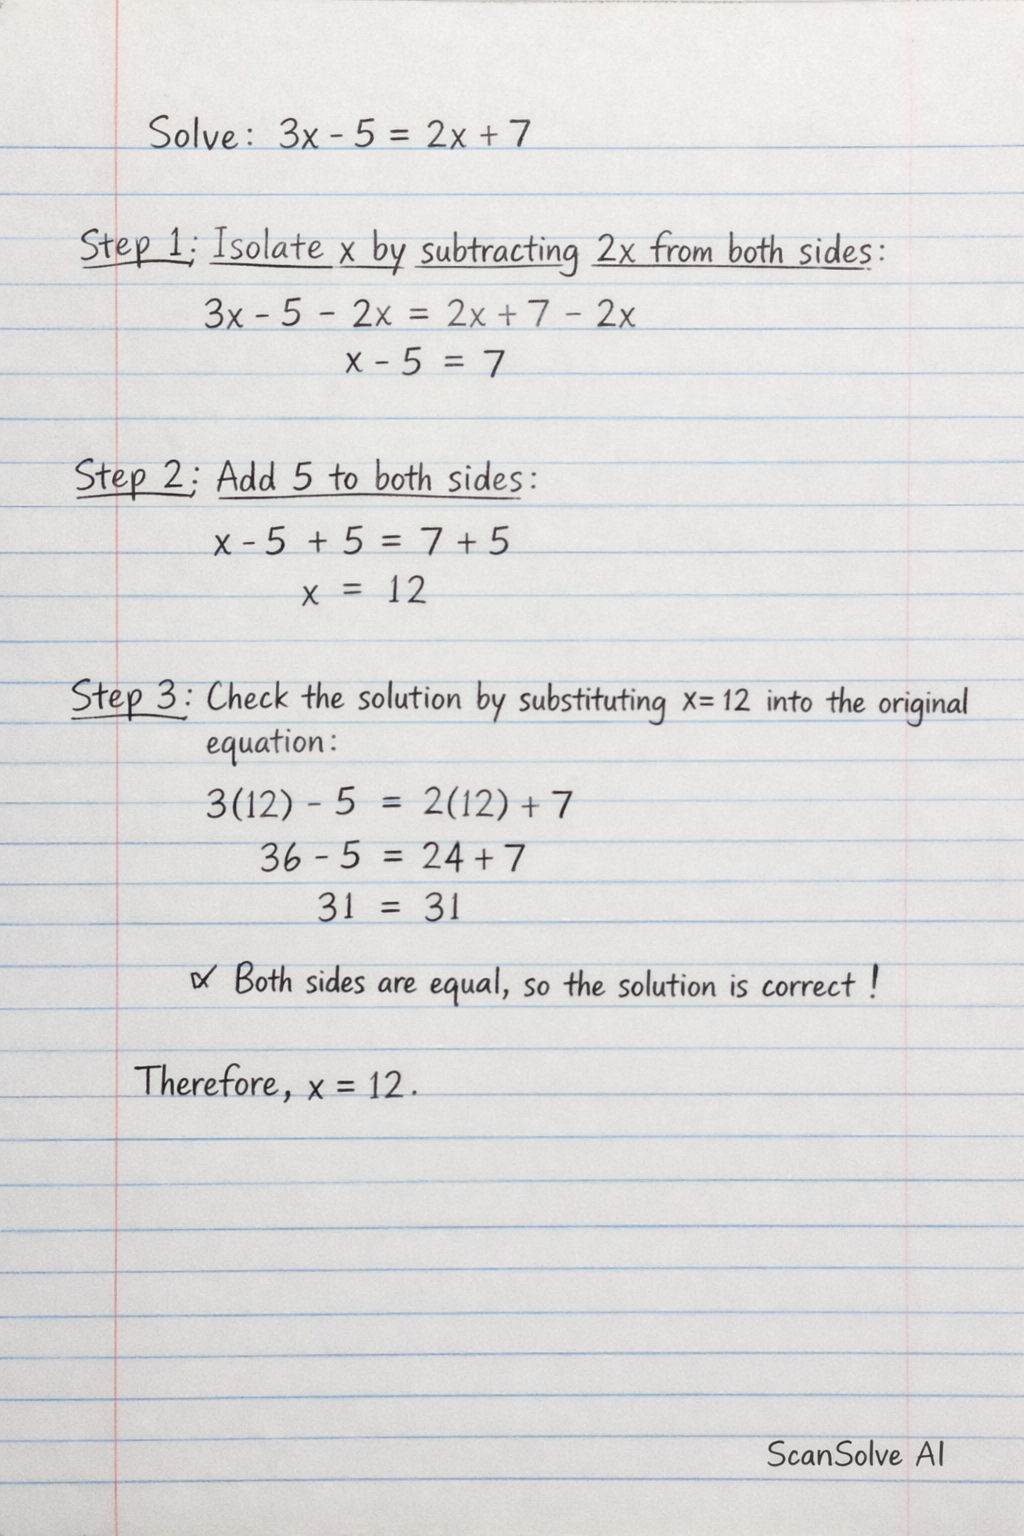 Solve: 3x - 5 = 2x + 7
Step 1; Isolate x by subtracting 2x from both sides:
3x - 5 - 2x = 2x + 7 - 2x
x - 5 = 7
Step 2; Add 5 to both sides:
x - 5 + 5 = 7 + 5
x = 12
Step 3: Check the solution by substituting x = 12 into the original
equation:
3(12) - 5 = 2(12) + 7
36 - 5 = 24 + 7
31 = 31
Both sides are equal, so the solution is correct !
Therefore, x = 12.
ScanSolve AI